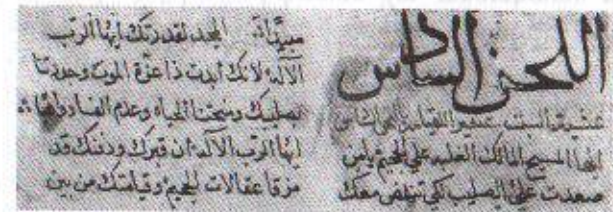 اللحن السادس
عشية السبت
ايها المسيح المالك الغلبه علي الجحيم يامن
صعدت علي الصليب لكي تنهض معك
المجد لقدرتك ايها الرب
الاله لانك ابدت ذا عزة الموت وجددتنا
بصليبك ومنحتنا الحياه وعدم الفساد
ايها الرب الاله ان قبرك ودفنك قد
مزقا عقالات الجحيم وقيامتك من بين